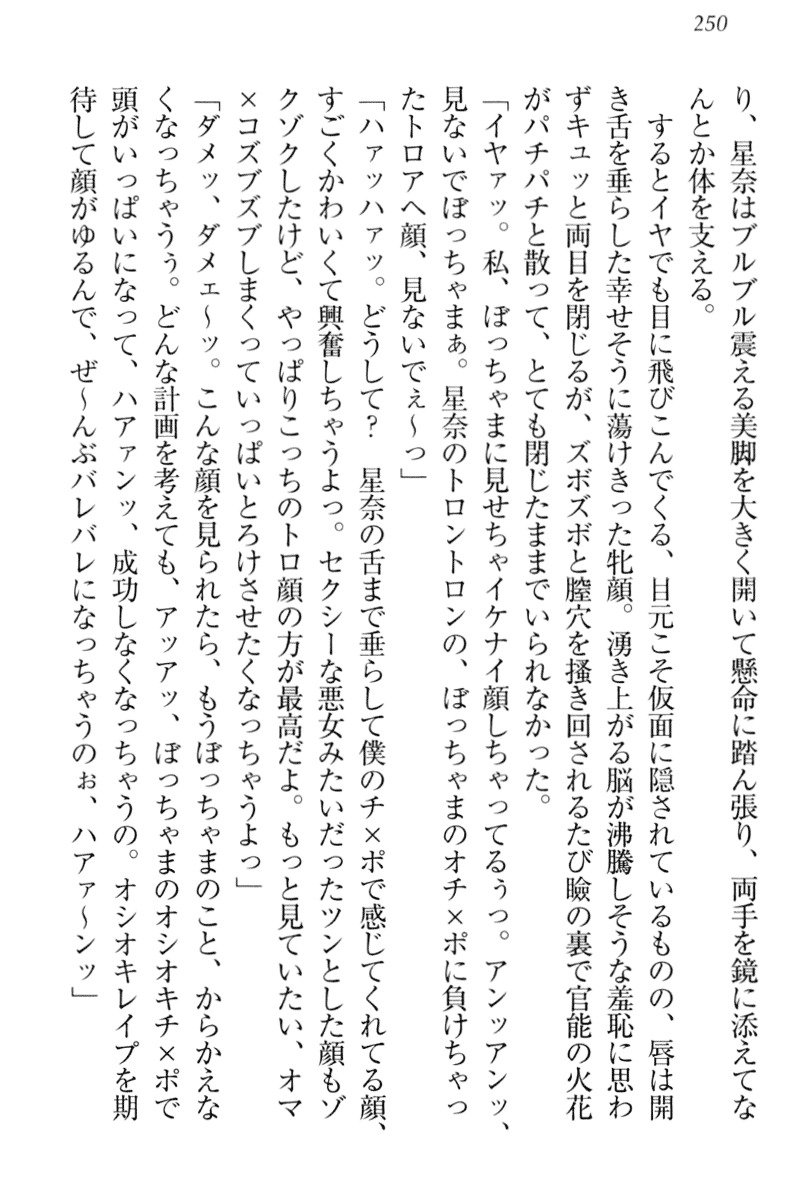 250
り、星奈はブルブル震える美脚を大きく開いて懸命に踏ん張り、両手を鏡に添えてな
んとか体を支える。
するとイヤでも目に飛びこんでくる、目元こそ仮面に隠されているものの、唇は開
き舌を垂らした幸せそうに蕩けきった牝顔。湧き上がる脳が沸騰しそうな羞恥に思わ
ずキュッと両目を閉じるが、ズボズボと膣穴を掻き回されるたび瞼の裏で官能の火花
がパチパチと散って、とても閉じたままでいられなかった。
「イヤァッ。私、ぼっちゃまに見せちゃイケナイ顔しちゃってるぅっ。アンッアンッ、
見ないでぼっちゃまぁ。星奈のトロントロンの、ぼっちゃまのオチ×ポに負けちゃっ
たトロアヘ顔、見ないでぇ～っ」
「ハァッハァッ。どうして？　星奈の舌まで垂らして僕のチ×ポで感じてくれてる顔、
すごくかわいくて興奮しちゃうよっ。セクシーな悪女みたいだったツンとした顔もゾ
クゾクしたけど、やっぱりこっちのトロ顔の方が最高だよ。もっと見ていたい、オマ
×コズブズブしまくっていっぱいとろけさせたくなっちゃうよっ」
「ダメッ、ダメェ～ッ。こんな顔を見られたら、もうぼっちゃまのこと、からかえな
くなっちゃうぅ。どんな計画を考えても、アッアッ、ぼっちゃまのオシオキチ×ポで
頭がいっぱいになって、ハアァンッ、成功しなくなっちゃうの。オシオキレイプを期
待して顔がゆるんで、ぜ～んぶバレバレになっちゃうのぉ、ハアァ～ンッ」